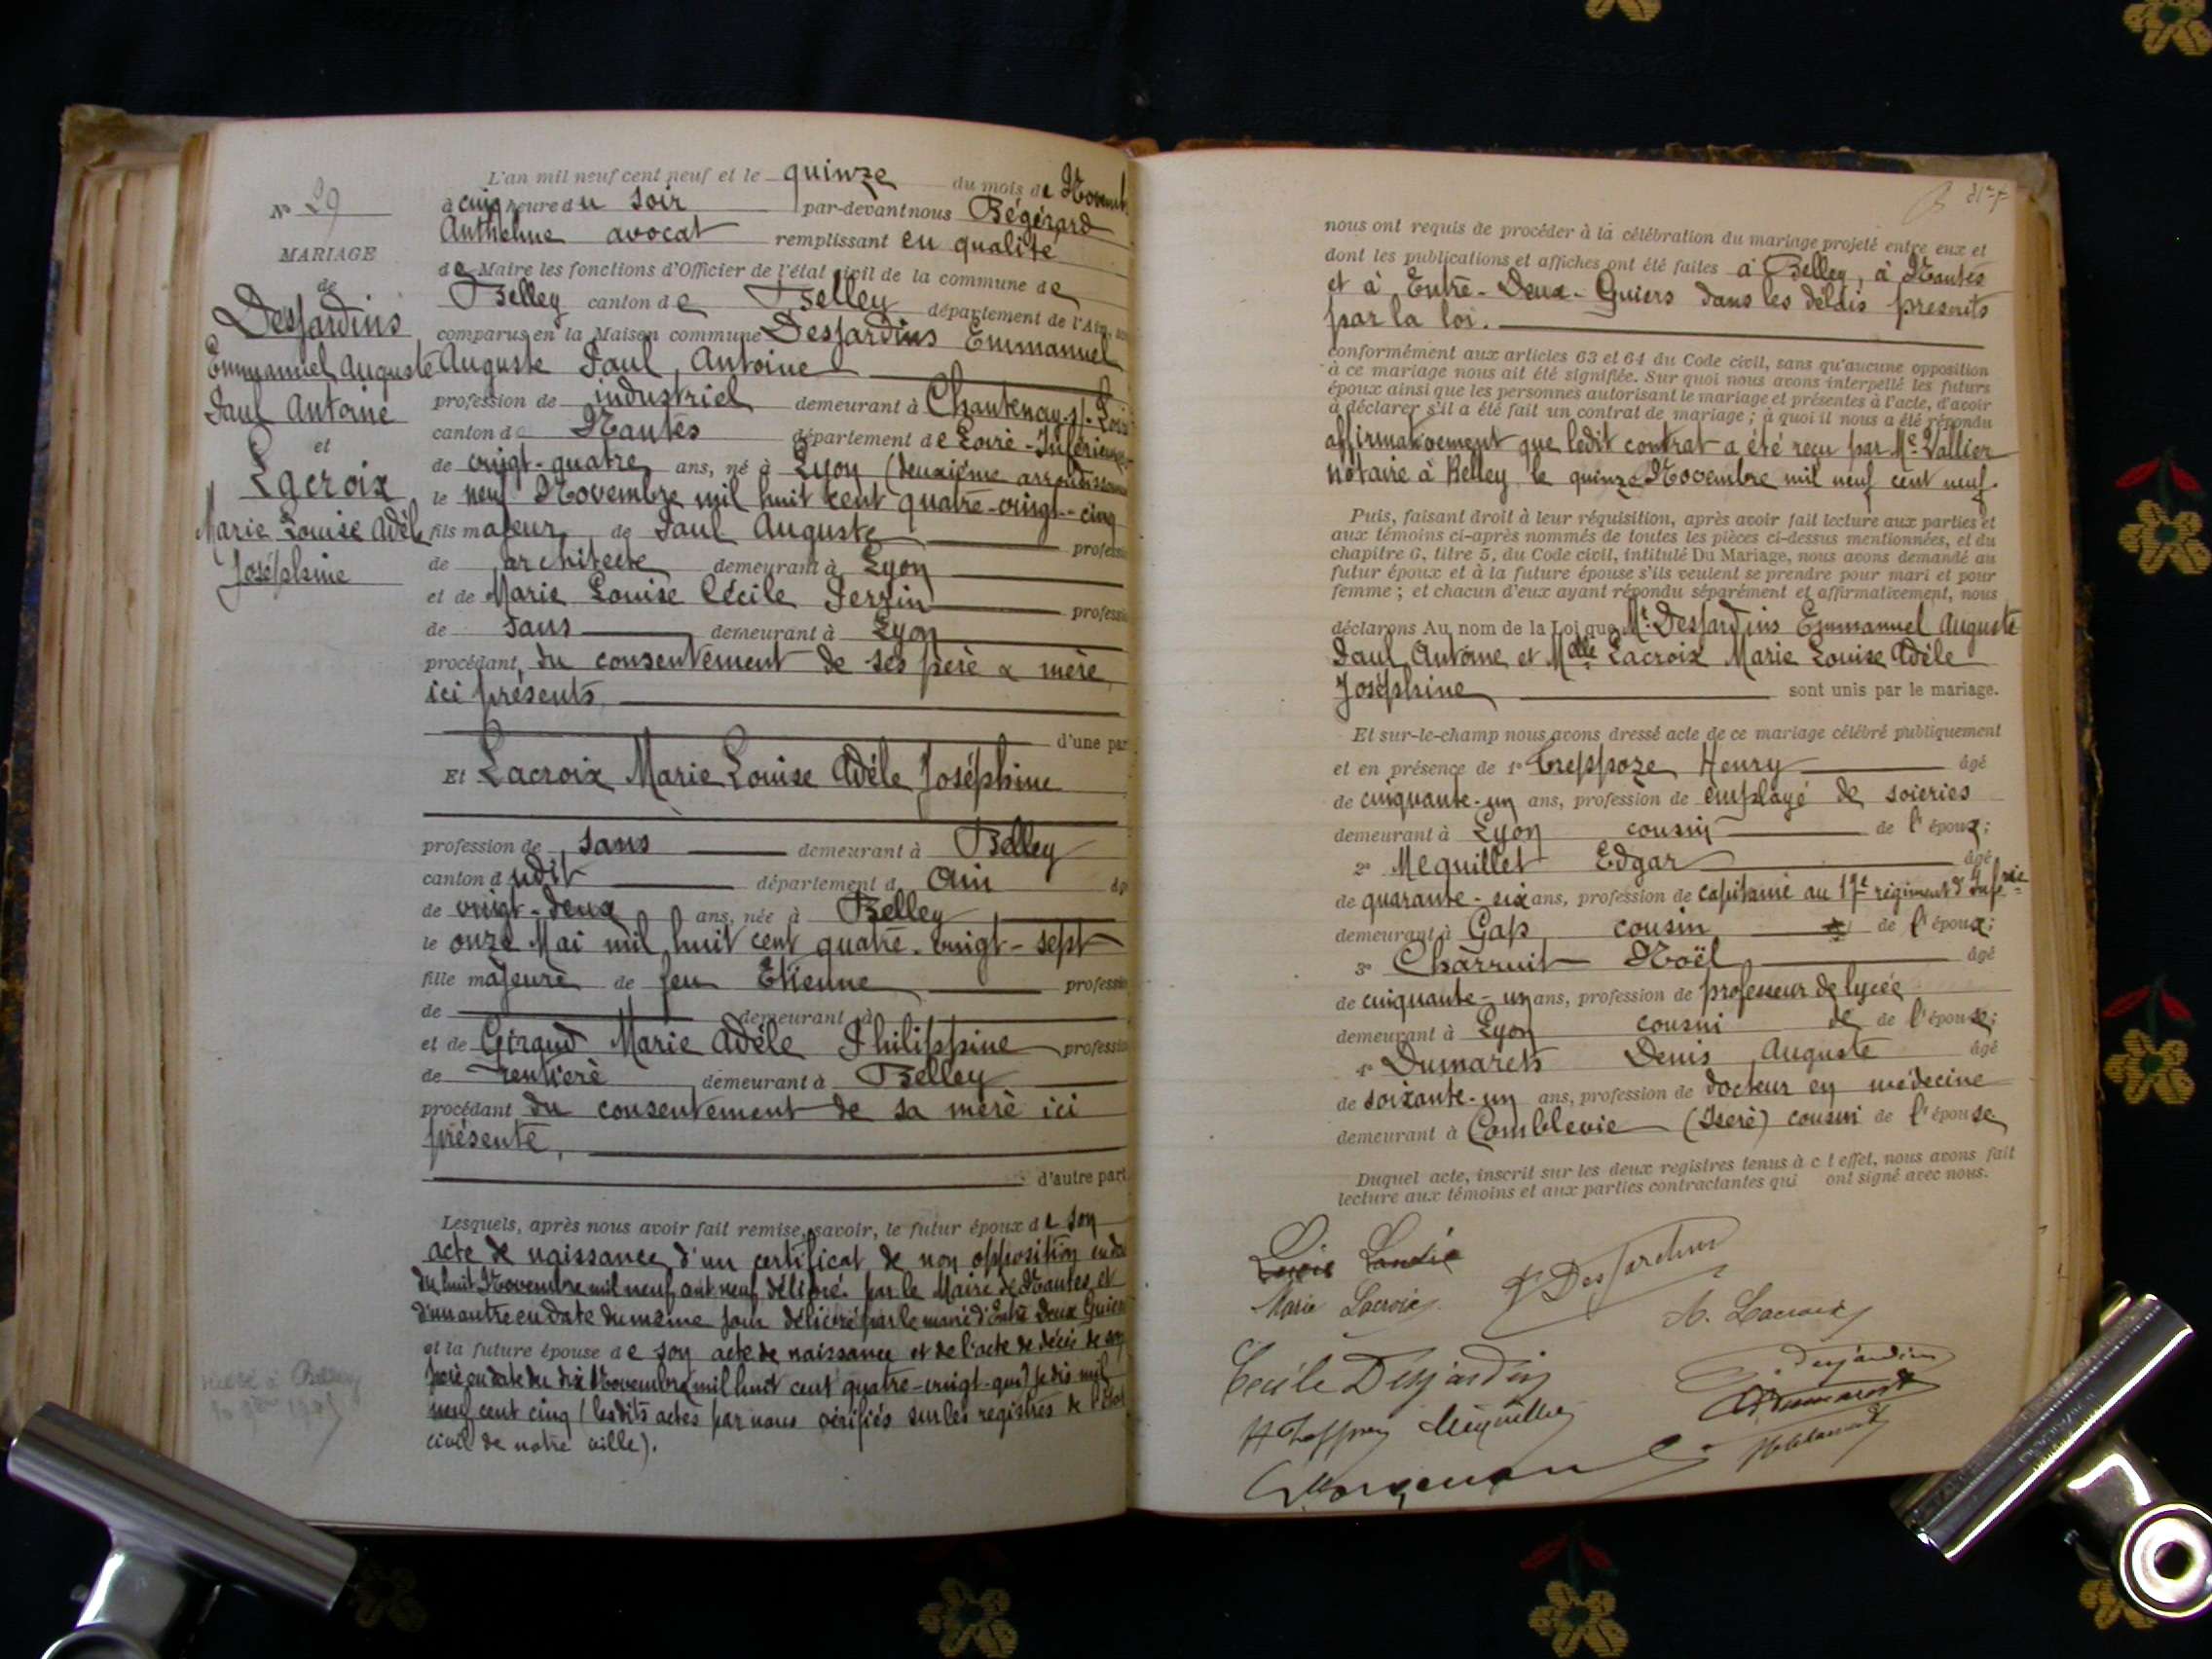 N° 29
MARIAGE
de
Desjardins
Emmanuel Auguste
Paul Antoine
et
Lacroix
Marie Louise Adèle
Joséphine
L'an mil neuf cent neuf et le quinze du mois de Novemb
à cinq heure du soir par-devant nous Bégérard
Anthelme avocat remplissant en qualité
de Maire les fonctions d'Officier de l'état civil de la commune de
Belley canton de Belley département de l'Ain,
comparus en la Maison commune Desjardins Emmanuel
Auguste Paul Antoine
profession de industriel demeurant à Chantenay-s/-Loire
canton de Nantes département de Loire-Inférieure
de vingt-quatre ans, né à Lyon (deuxième arrondissement
le neuf Novembre mil huit cent quatre-vingt-cinq
fils majeur de Paul Auguste profession
de architecte demeurant à Lyon
et de Marie Louise Cécile Perrin profession
de sans demeurant à Lyon
procédant du consentement de ses père & mère
ici présents
d'une part
Et Lacroix Marie Louise Adèle Joséphine
profession de sans demeurant à Belley
canton dudit département d Ain
de vingt-deux ans, née à Belley
le onze Mai mil huit cent quatre-vingt-sept
fille majeure de feu Etienne profession
de demeurant à
et de Giraud Marie Adèle Philippine profession
de rentière demeurant à Belley
procédant du consentement de sa mère ici
présente,
d'autre part
Lesquels, après nous avoir fait remise, savoir, le futur époux de son
acte de naissance, d'un certificat de non opposition en date
du huit Novembre mil neuf cent neuf délivré par le Maire de Nantes et
d'un autre en date du même jour délivré par le maire d'Entre Deux Guiers
et la future épouse de son acte de naissance et de l'acte de décès de son
père en date du dix Novembre mil huit cent quatre-vingt- je dis mil
neuf cent cinq (lesdits actes par nous vérifiés sur les registres de l'état
civil de notre ville).
nous ont requis de procéder à la célébration du mariage projeté entre eux et
dont les publications et affiches ont été faites à Belley, à Nantes
et à Entre-Deux-Guiers dans les délais prescrits
par la loi.
conformément aux articles 63 et 64 du Code civil, sans qu'aucune opposition
à ce mariage nous ait été signifiée. Sur quoi nous avons interpellé les futurs
époux ainsi que les personnes autorisant le mariage et présentes à l'acte, d'avoir
à déclarer s'il a été fait un contrat de mariage ; à quoi il nous a été répondu
affirmativement que ledit contrat a été reçu par Me Vallier
notaire à Belley le quinze Novembre mil neuf cent neuf.
Puis, faisant droit à leur réquisition, après avoir fait lecture aux parties et
aux témoins ci-après nommés de toutes les pièces ci-dessus mentionnées, et du
chapitre 6, titre 5, du Code civil, intitulé Du Mariage, nous avons demandé au
futur époux et à la future épouse s'ils veulent se prendre pour mari et pour
femme ; et chacun d'eux ayant répondu séparément et affirmativement, nous
déclarons Au nom de la Loi que Mr Desjardins Emmanuel Auguste
Paul Antoine et Melle Lacroix Marie Louise Adèle
Joséphine sont unis par le mariage.
Et sur-le-champ nous avons dressé acte de ce mariage célébré publiquement
et en présence de 1° Treppoze Henry âgé
de cinquante-un ans, profession de employé de soieries
demeurant à Lyon cousin de l'époux;
2° Mequillet Edgar âgé
de quarante-six ans, profession de capitaine au 17e régiment d'Infrie
demeurant à Gap cousin de l'époux;
3° Charruit Noël âgé
de cinquante-un ans, profession de professeur de lycée
demeurant à Lyon cousin de de l'épouse;
4° Dumarets Denis Auguste âgé
de soixante-un ans, profession de docteur en médecine
demeurant à Comblevie (Isère) cousin de l'épouse
Duquel acte, inscrit sur les deux registres tenus à c t effet, nous avons fait
lecture aux témoins et aux parties contractantes qui ont signé avec nous.
Marie Lacroix
P Desjardins
A. Lacroix
Cécile Desjardins
desjardins
Méquillet